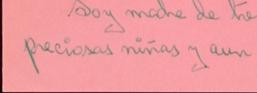 Soy madre de tre
preciosas niñas y aun